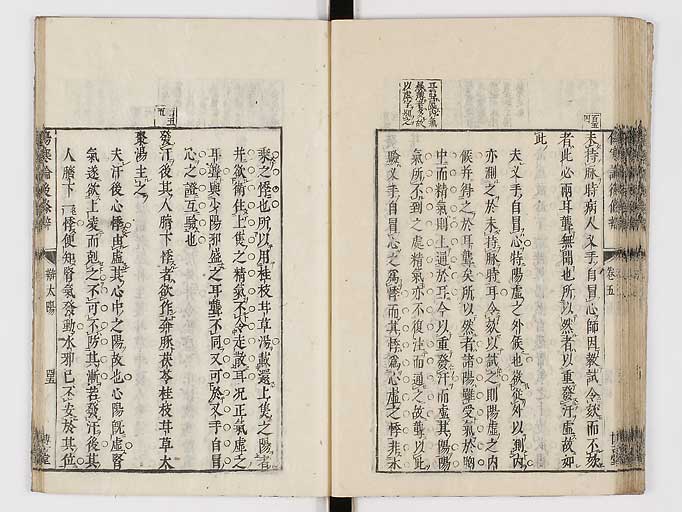 未持脉時病人叉手自冒心師因教試令欬而不欬
者此必兩耳聾無聞也所以然者以重發汗虛故如
此
夫叉手自冒心特陽虛之外候也欲從外以測内
亦測之於未持脉時耳令欬以試之則陽虛之内
候并得之於耳聾矣所以然者諸陽雖受氣於胸
中而精氣則上通於耳今以重發汗而虛其陽陽
氣所不到之處精氣亦不復注而通之故聾以此
驗叉手自冒心之為悸而其悸為心虛之悸非水
乘之悸也所以用桂枝甘草湯載還上焦之陽者
并欲衛住上焦之精氣不令走散耳況正氣虛之
耳聾與少陽邪盛之耳聾不同又可於叉手自冒
心之證互驗也
發汗後其人臍下悸者欲作奔豚茯苓桂枝甘草大
棗湯主之
夫汗後心悸虛虛其心中之陽故也心陽既虛腎
氣遂欲上凌而剋之不可不防其漸若發汗後其
人臍下悸便知腎氣發動水邪已不安於其位
卷五
辯太陽